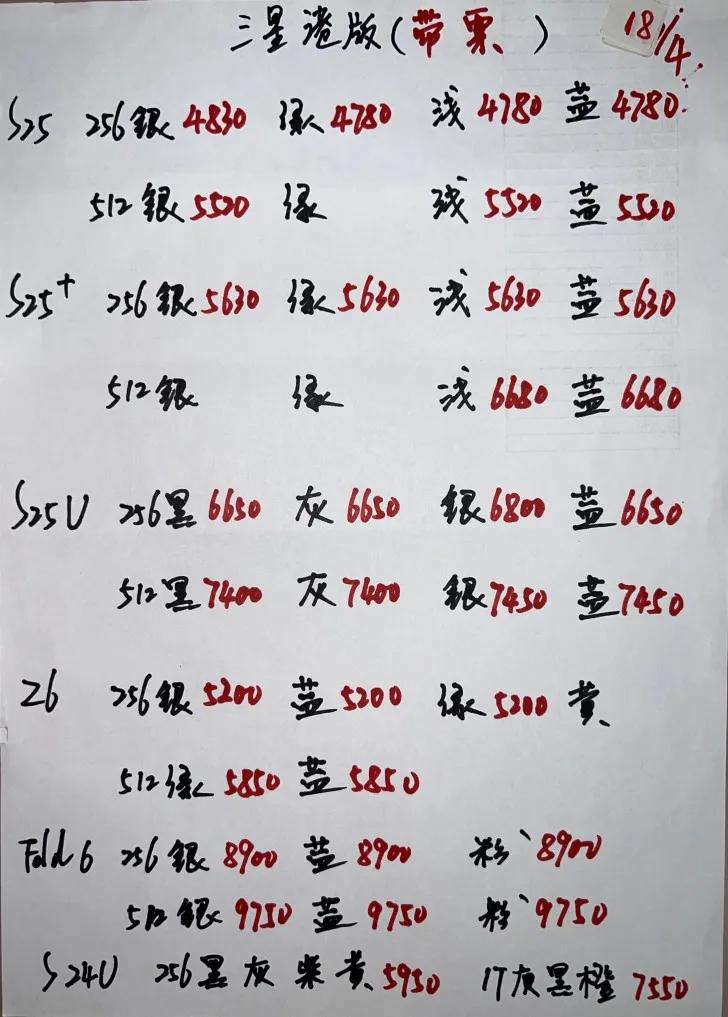 三星港版(带票) 18/4
S25 256銀4830 绿4780 浅4780 蓝4780
512銀5520 绿 浅5520 蓝5520
S25+ 256銀5630 绿5630 浅5630 蓝5630
512銀 绿 浅6680 蓝6680
S25U 256黑6650 灰6650 銀6800 蓝6650
512黑7400 灰7400 銀7450 蓝7450
Z6 256銀5200 蓝5200 绿5200 黄
512绿5850 蓝5850
Fold6 256銀8900 蓝8900 粉8900
512銀9750 蓝9750 粉9750
S24U 256黑灰紫黄5950 1T灰黑橙7550